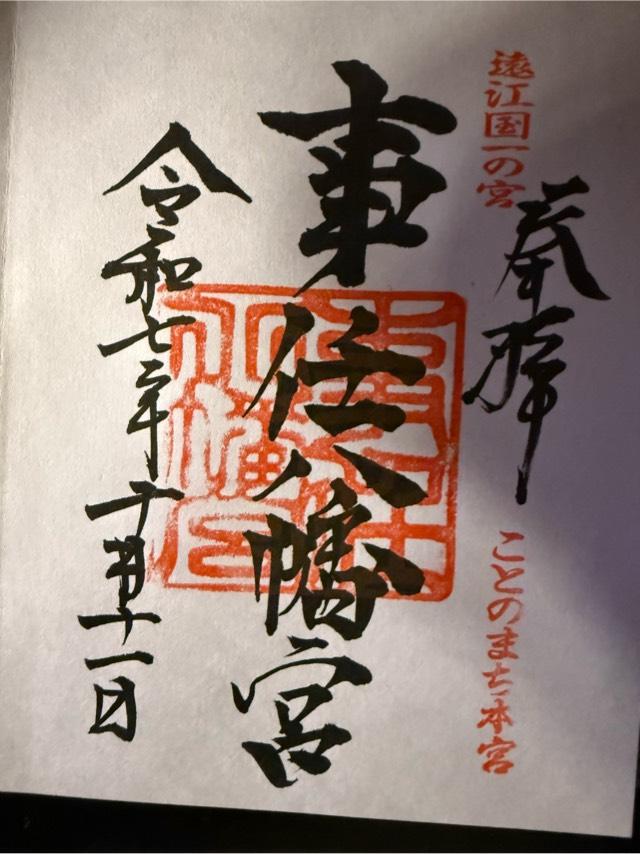 遠江国一の宮
奉拝
ことのまち本宮
事任八幡宮
令和七年十月十一日